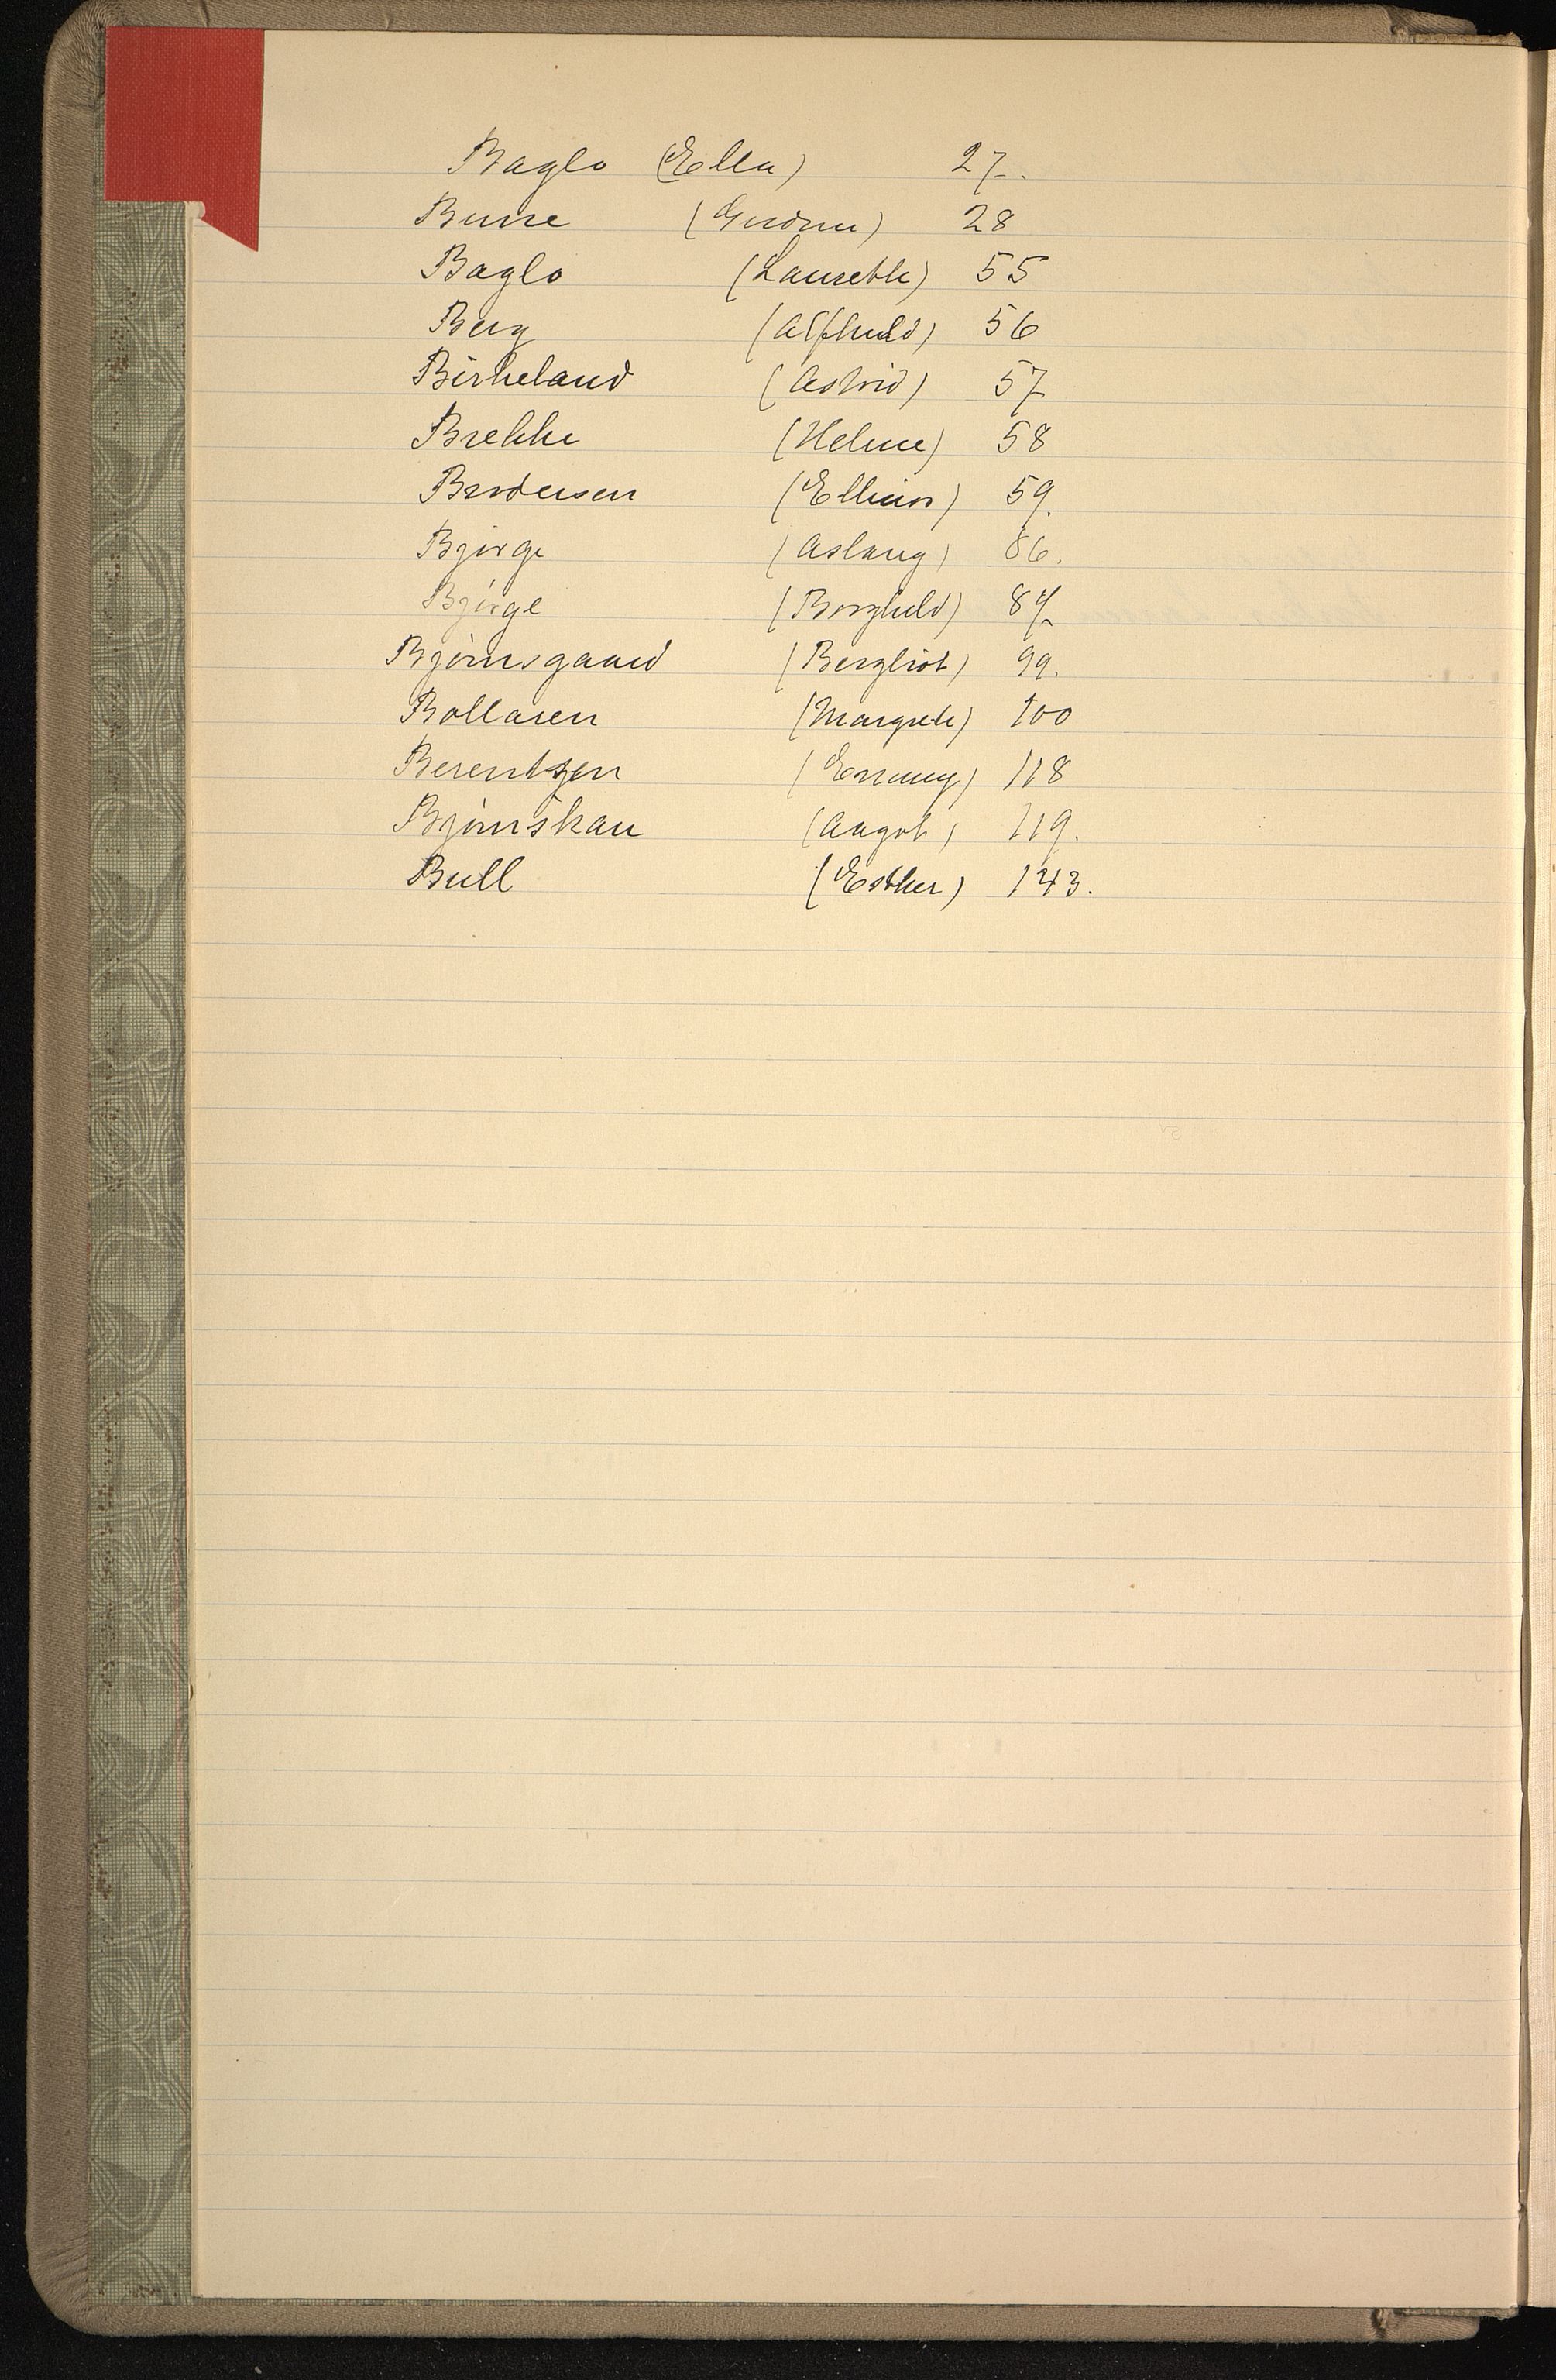 Baglo (Ella) 27.
Burre (Gudrun) 28
Baglo (Laurette) 55
Berg (Alfhild) 56
Birkeland (Astrid) 57
Brekke (Helene) 58
Brodersen (Ellinor) 59.
Bjørge (Aslaug) 86.
Bjørge (Borghild) 87.
Bjørnsgaard (Bergliot) 99.
Bollaren (Margrete) 100
Berentzen (Emmy) 118
Bjørnskau (Aagot) 119.
Bull (Esther) 143.